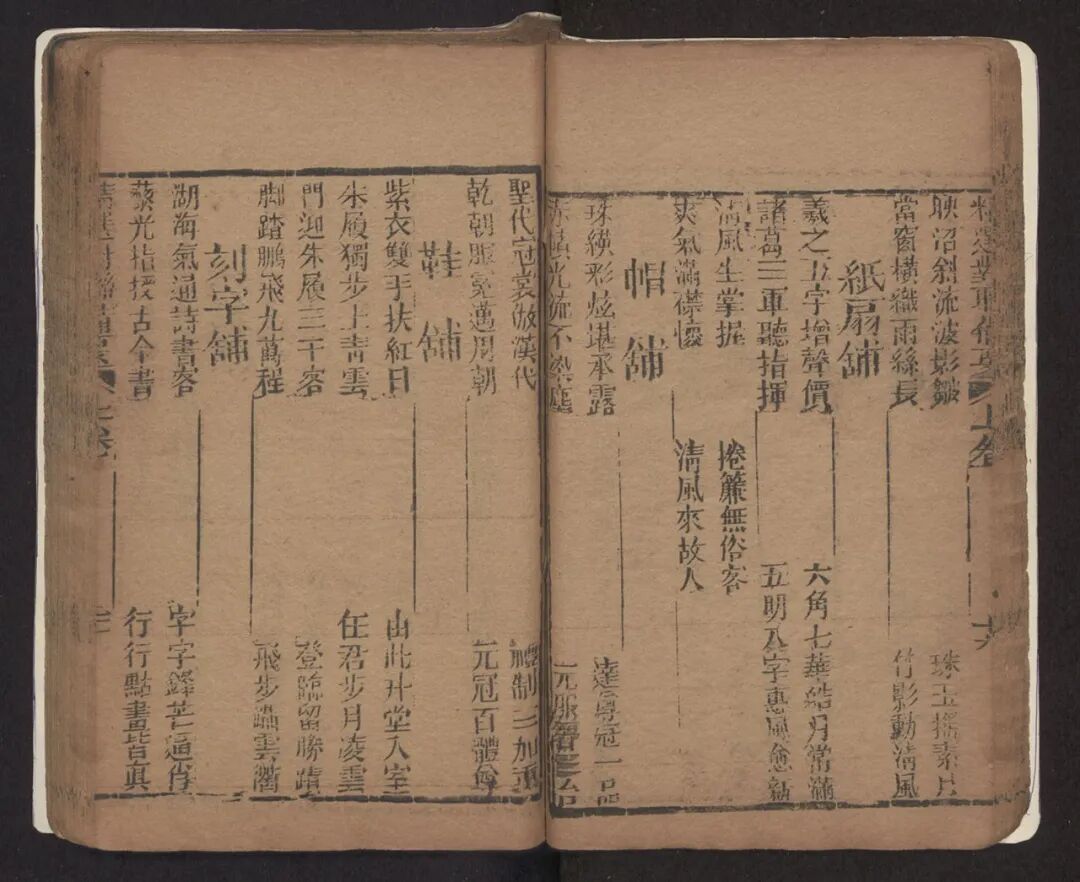 上卷
映沼斜流波影皺
珠玉搖素片
當窗橫織雨絲長
竹影動清風
紙扇舖
羲之五字增聲價
六角七華皓月常滿
諸葛三軍聽指揮
五明八字惠風愈新
清風生掌握
捲簾無俗客
爽氣滿襟懷
清風來故人
帽舖
珠纓彩炫堪承露
冠一品
光流不染塵
聖代冠裳倣漢代
禮制三加重
乾朝服冕邁周朝
元冠百體尊
鞋舖
紫衣雙手扶紅日
由此升堂入室
朱履獨步上青雲
任君步月凌雲
門迎朱履三千客
登臨留勝蹟
脚踏鵬飛九萬程
飛步躡雲衢
刻字舖
湖海氣通詩書客
字字鋒芒逼肖
藜光指授古今書
行行點畫皆真
上卷